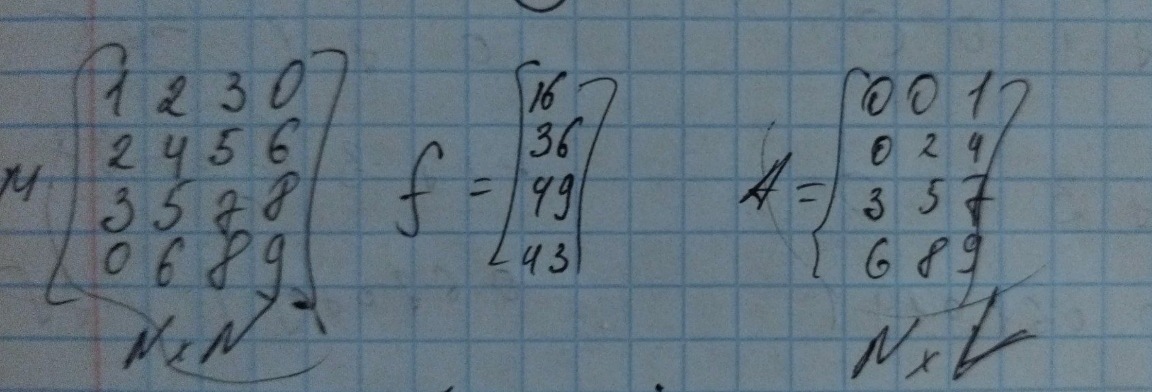 M [1 2 3 0
2 4 5 6
3 5 7 8
0 6 8 9]
N x N
f = [16
36
49
43]
A = [0 0 1
0 2 4
3 5 7
6 8 9]
N x L